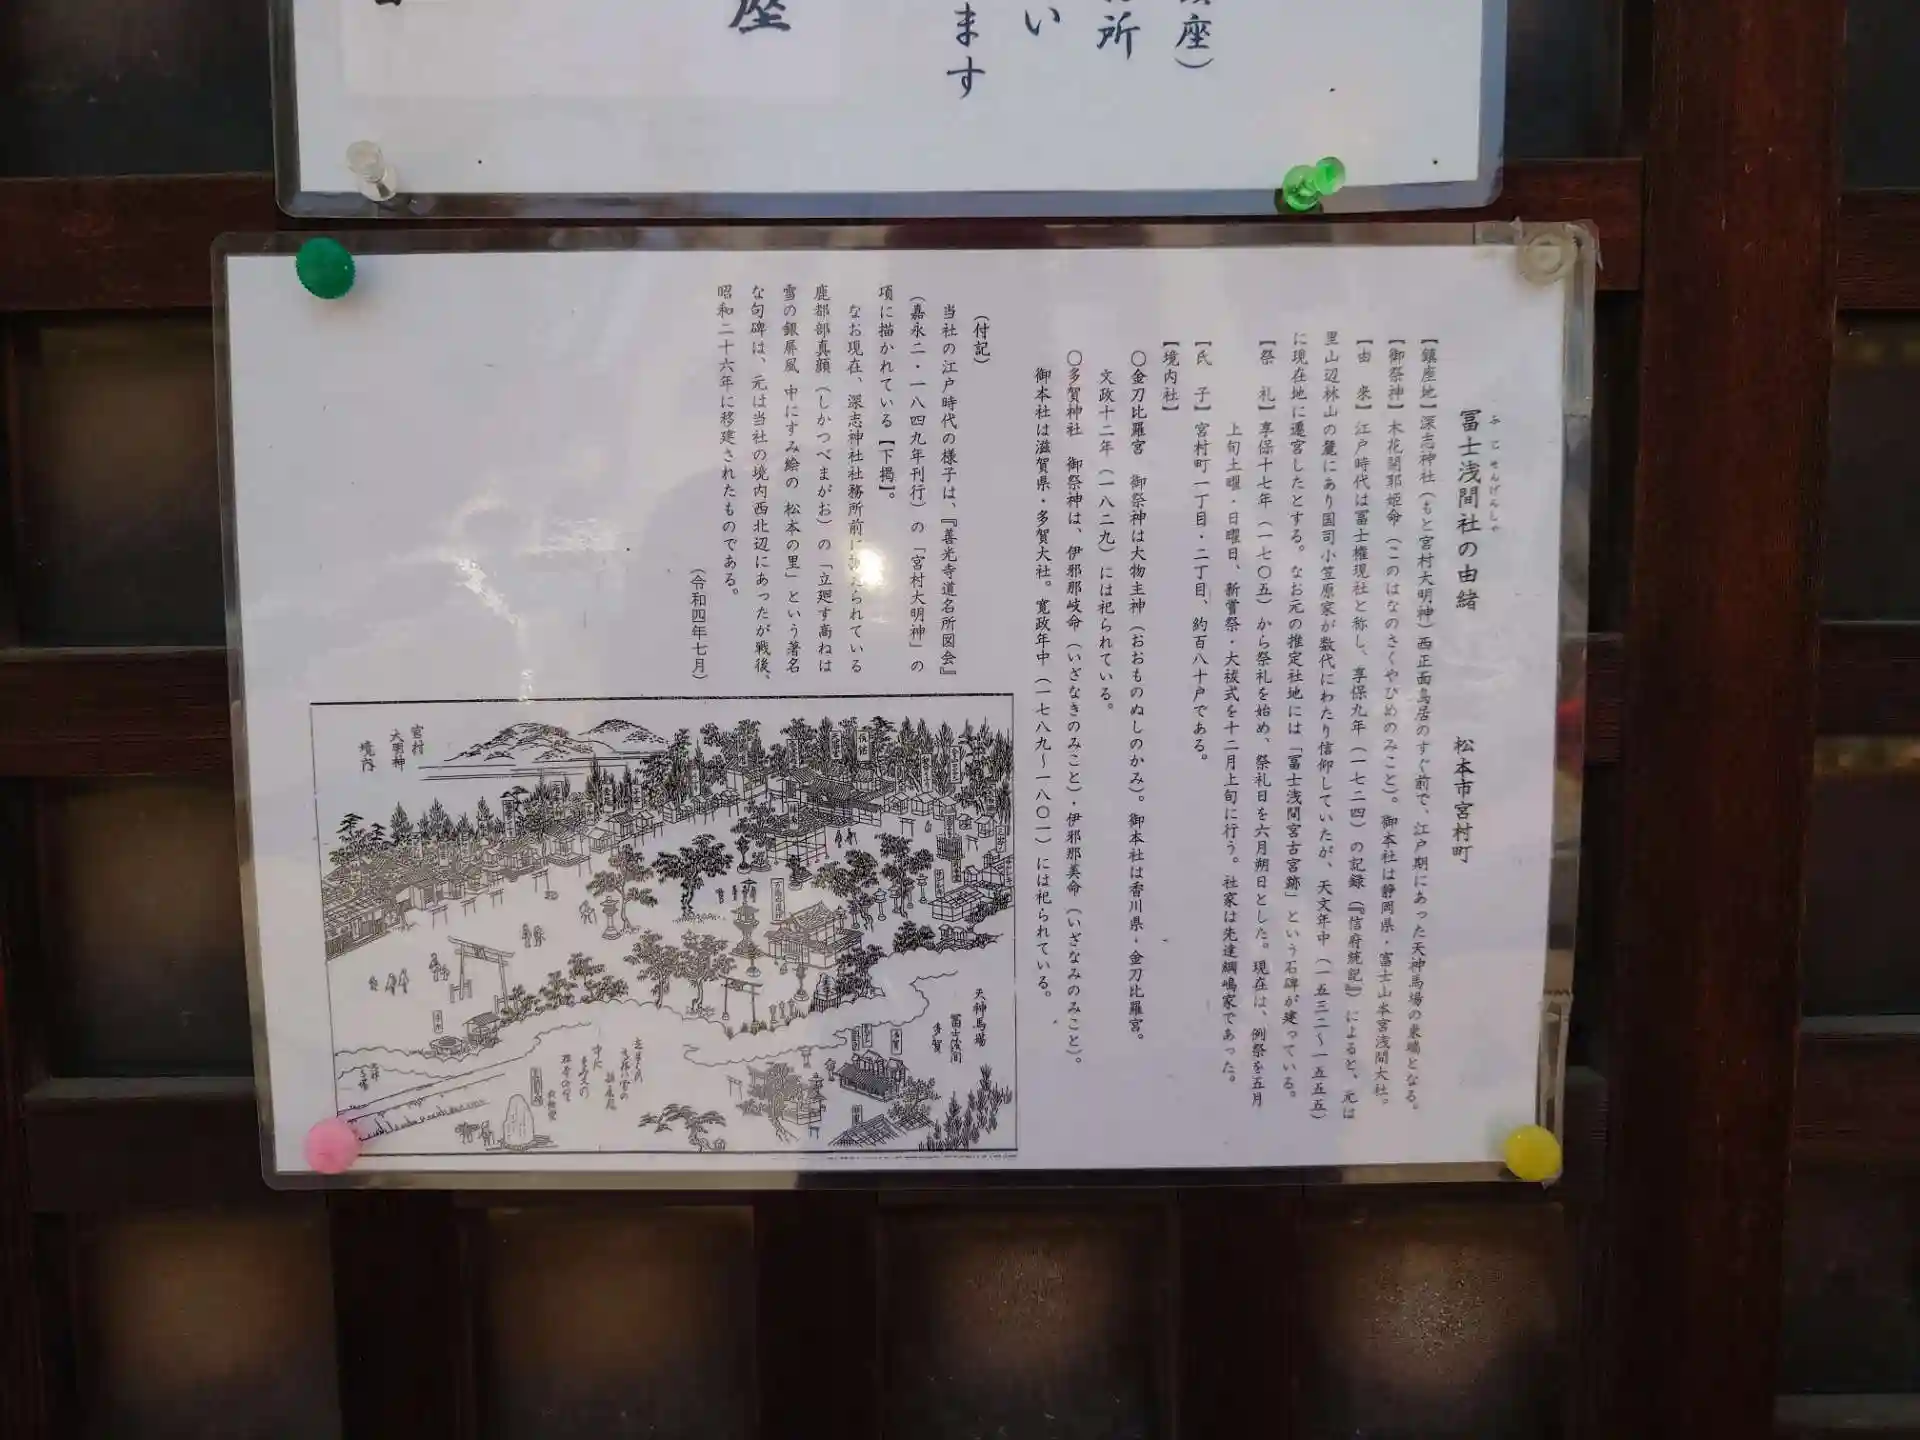 座)
所
い
ます
座
ふじせんげんしゃ
冨士浅間社の由緒　松本市宮村町
【鎮座地】深志神社(もと宮村大明神)西正面鳥居のすぐ前で、江戸期にあった天神馬場の東端となる。
【御祭神】木花開耶姫命(このはなのさくやびめのみこと)。御本社は静岡県・富士山本宮浅間大社。
【由　来】江戸時代は冨士権現社と称し、享保九年(一七二四)の記録(『信府統記』)によると、元は
里山辺林山の麓にあり国司小笠原家が数代にわたり信仰していたが、天文年中(一五三二〜一五五五)
に現在地に遷宮したとする。なお元の推定社地には「冨士浅間宮古宮跡」という石碑が建っている。
【祭　礼】享保十七年(一七〇五)から祭礼を始め、祭礼日を六月朔日とした。現在は、例祭を五月
上旬土曜・日曜日、新嘗祭・大祓式を十二月上旬に行う。社家は先達綱嶋家であった。
【氏　子】宮村町一丁目・二丁目、約百八十戸である。
【境内社】
〇金刀比羅宮　御祭神は大物主神(おおものぬしのかみ)。御本社は香川県・金刀比羅宮。
文政十二年(一八二九)には祀られている。
〇多賀神社　御祭神は、伊邪那岐命(いざなきのみこと)・伊邪那美命(いざなみのみこと)。
御本社は滋賀県・多賀大社。寛政年中(一七八九〜一八〇一)には祀られている。
(付記)
当社の江戸時代の様子は、『善光寺道名所図会』
(嘉永二・一八四九年刊行)の「宮村大明神」の
項に描かれている【下掲】。
なお現在、深志神社社務所前に られている
鹿都部真顔(しかつべまがお)の「立廻す高ねは
雪の銀屏風 中にすみ絵の 松本の里」という著名
な句碑は、元は当社の境内西北辺にあったが戦後、
昭和二十六年に移建されたものである。
(令和四年七月)
宮村
大明神
境内
天神馬場
冨士浅間
多賀